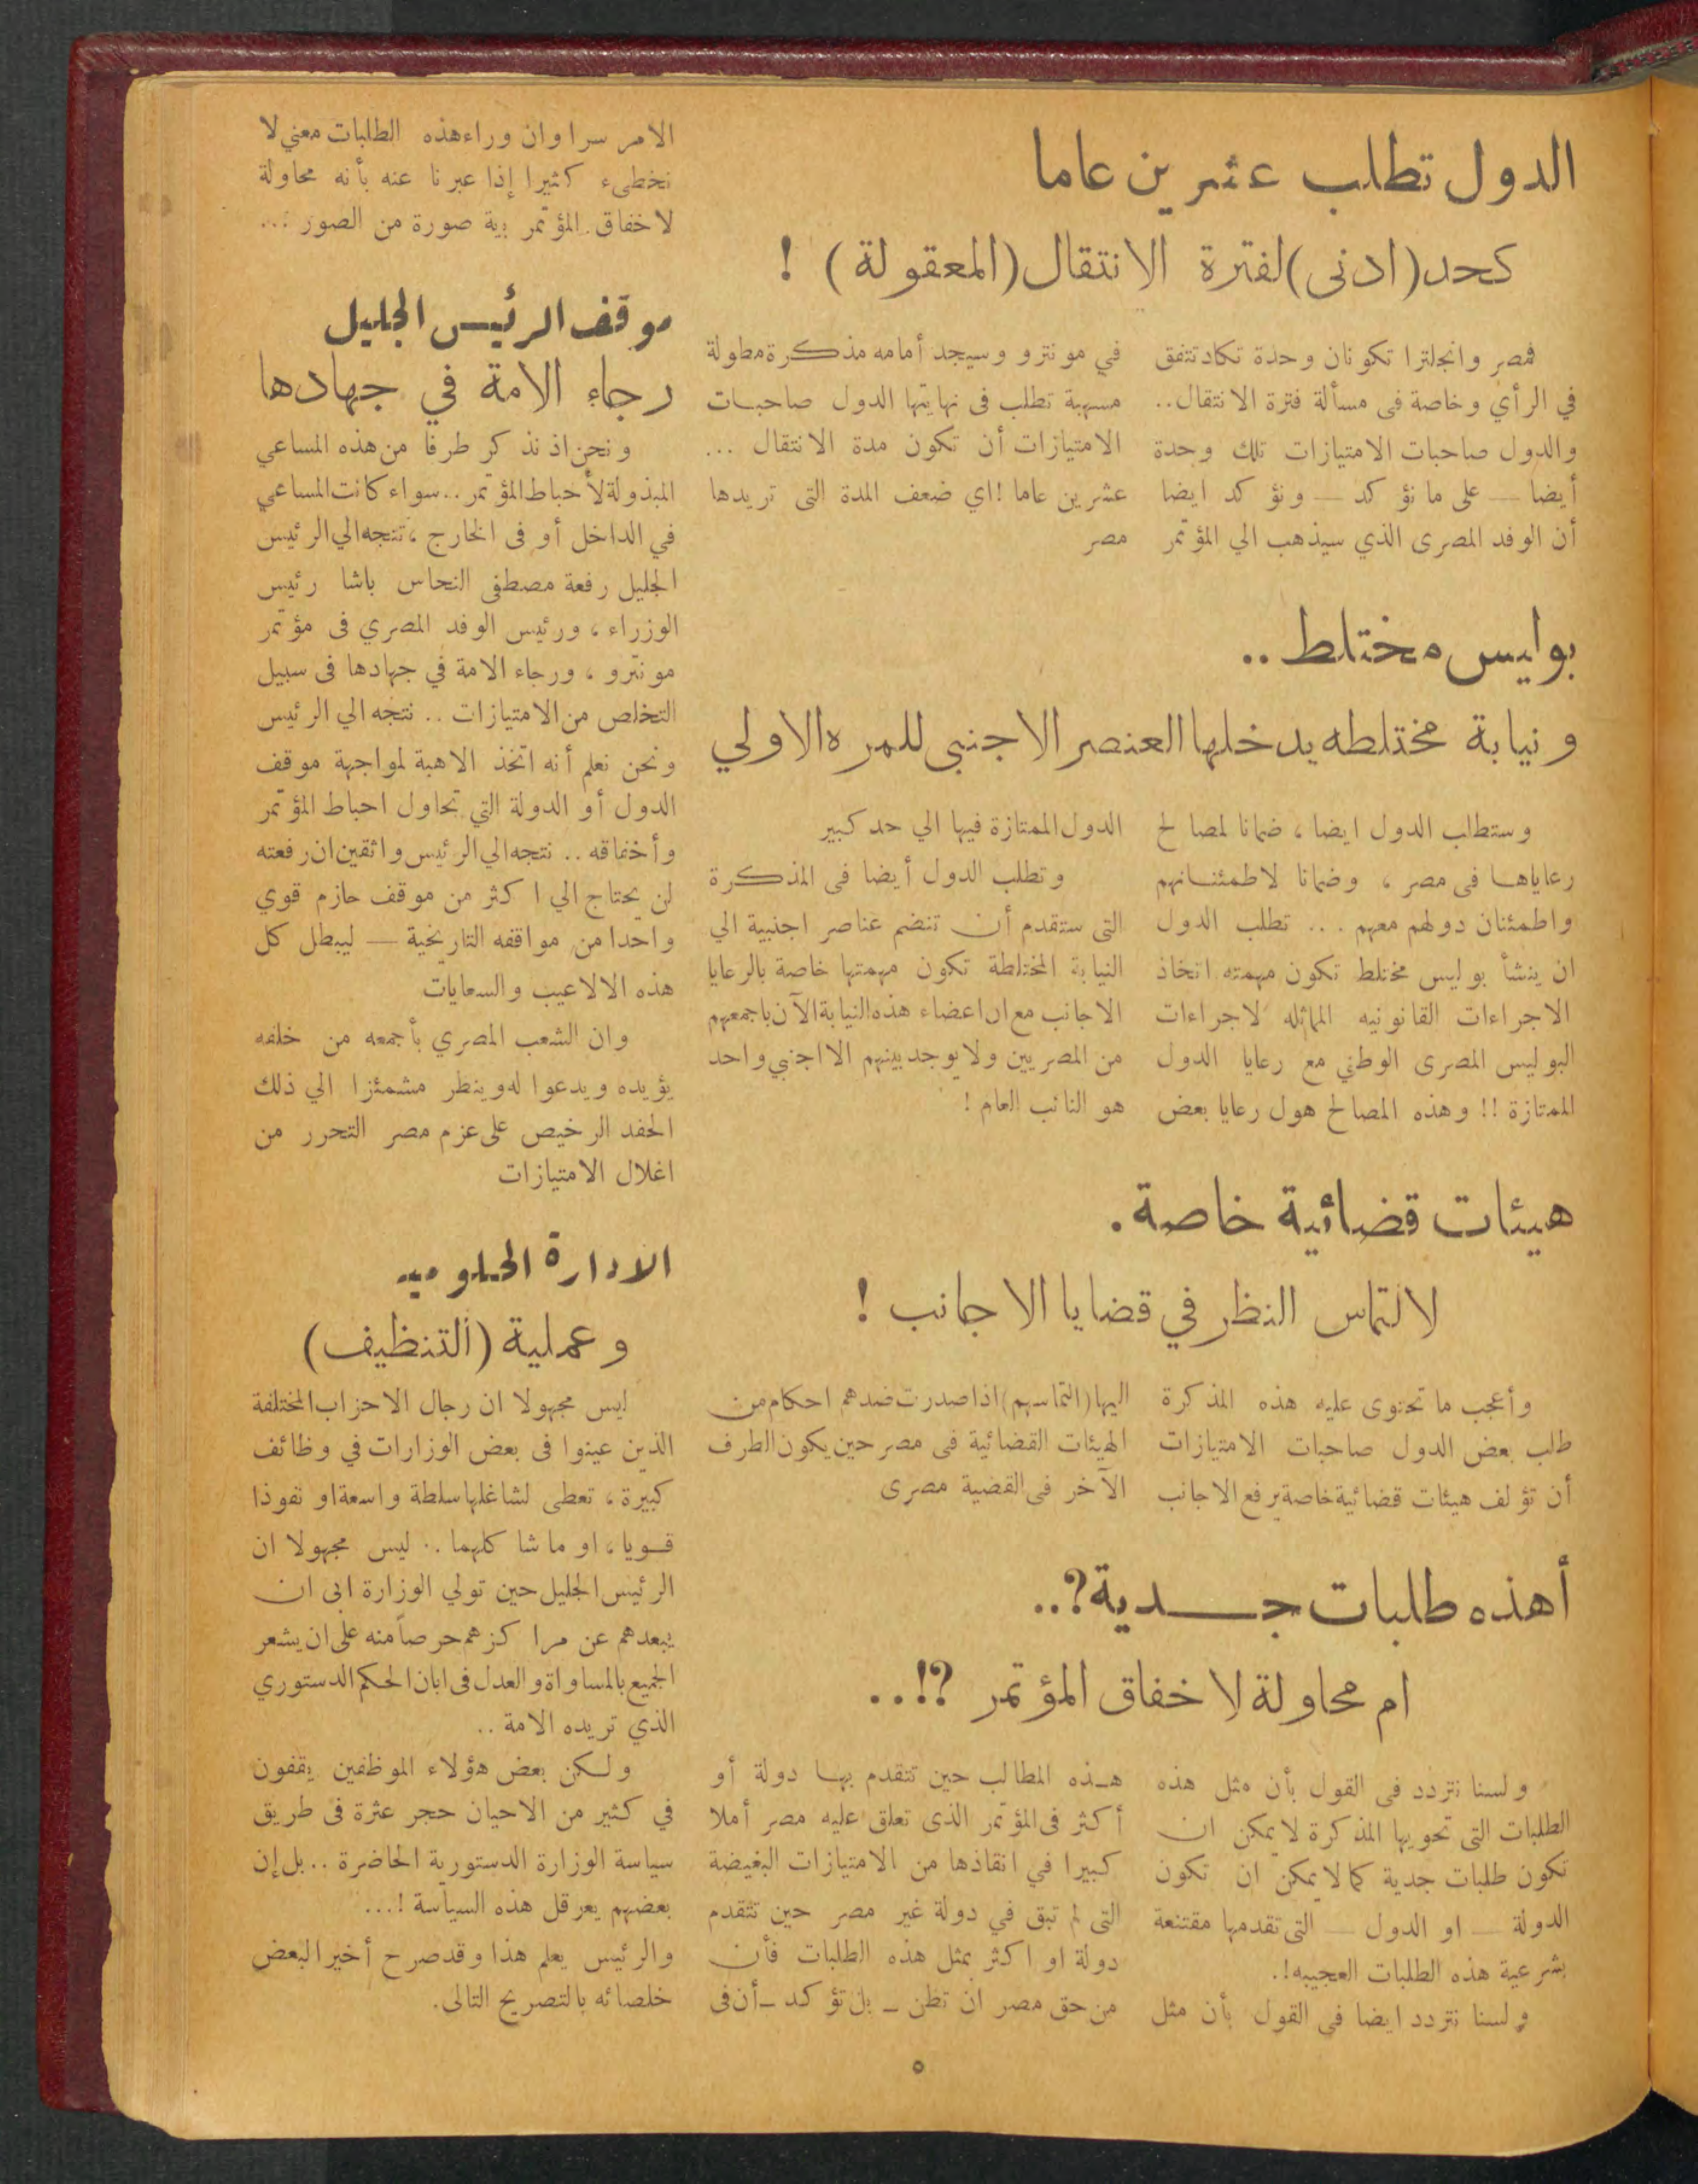 الدول تطلب عشرين عاما
كحد (ادنى) لفترة الانتقال (المعقولة) !
فمصر وانجلترا تكونان وحدة تكاد تتفق
في الرأي وخاصة فى مسألة فترة الانتقال..
والدول صاحبات الامتيازات تلك وحدة
أيضا — على ما نؤكد — ونؤكد ايضا
أن الوفد المصرى الذي سيذهب الي المؤتمر
في مونترو وسيجد أمامه مذكرة مطولة
مسهبة تطلب فى نهايتها الدول صاحبات
الامتيازات أن تكون مدة الانتقال ...
عشرين عاما ! اي ضعف المدة التى تريدها
مصر
بوليس مختلط ..
ونيابة مختلطه يدخلها العنصر الاجنبى للمره الاولي
وستطلب الدول ايضا ، ضمانا لمصالح
رعاياها فى مصر ، وضمانا لاطمئنانهم
واطمئنان دولهم معهم ... تطلب الدول
ان ينشأ بوليس مختلط تكون مهمته اتخاذ
الاجراءات القانونيه المماثله لاجراءات
البوليس المصرى الوطني مع رعايا الدول
الممتازة !! وهذه المصالح هول رعايا بعض
الدول الممتازة فيها الي حد كبير
وتطلب الدول أيضا فى المذكرة
التى ستقدم أن تنضم عناصر اجنبية الي
النيابة المختلطة تكون مهمتها خاصة بالرعايا
الاجانب مع ان اعضاء هذه النيابة الآن باجمعهم
من المصريين ولا يوجد بينهم الا اجنبي واحد
هو النائب العام !
هيئات قضائية خاصة .
لالتماس النظر في قضايا الاجانب !
وأعجب ما تحتوى عليه هذه المذكرة
طلب بعض الدول صاحبات الامتيازات
أن تؤلف هيئات قضائية خاصة يرفع الاجانب
اليها (التماسهم) اذا صدرت ضدهم احكام من
الهيئات القضائية فى مصر حين يكون الطرف
الآخر فى القضية مصرى
أهذه طلبات جدية ?..
ام محاولة لاخفاق المؤتمر ?!..
ولسنا نتردد فى القول بأن مثل هذه
الطلبات التى تحويها المذكرة لا يمكن ان
تكون طلبات جدية كما لا يمكن ان تكون
الدولة — او الدول — التى تقدمها مقتنعة
بشرعية هذه الطلبات العجيبه !.
ولسنا نتردد ايضا فى القول بأن مثل
هذه المطالب حين تتقدم بها دولة أو
أكثر فى المؤتمر الذى تعلق عليه مصر أملا
كبيرا في انقاذها من الامتيازات البغيضة
التى لم تبق في دولة غير مصر حين تتقدم
دولة او اكثر بمثل هذه الطلبات فأن
من حق مصر ان تظن — بل تؤكد — أن فى
الامر سرا وان وراء هذه الطلبات معني لا
نخطىء كثيرا إذا عبرنا عنه بأنه محاولة
لاخفاق المؤتمر بية صورة من الصور :..
موقف الرئيس الجليل
رجاء الامة في جهادها
ونحن اذ نذكر طرفا من هذه المساعي
المبذولة لأحباط المؤتمر .. سواء كانت المساعي
في الداخل أو فى الخارج ، نتجه الي الرئيس
الجليل رفعة مصطفى النحاس باشا رئيس
الوزراء ، ورئيس الوفد المصري فى مؤتمر
مونترو ، ورجاء الامة في جهادها فى سبيل
التخلص من الامتيازات .. نتجه الي الرئيس
ونحن نعلم أنه اتخذ الاهبة لمواجهة موقف
الدول أو الدولة التي تحاول احباط المؤتمر
وأخفاقه .. نتجه الي الرئيس واثقين ان رفعته
لن يحتاج الي اكثر من موقف حازم قوي
واحدا من مواقفه التاريخية — ليبطل كل
هذه الالاعيب والسعايات
وان الشعب المصري بأجمعه من خلفه
يؤيده ويدعوا له وينظر مشمئزا الي ذلك
الحقد الرخيص على عزم مصر التحرر من
اغلال الامتيازات
الادارة الحكوميه
وعملية (التنظيف)
ليس مجهولا ان رجال الاحزاب المختلفة
الذين عينوا فى بعض الوزارات في وظائف
كبيرة ، تعطى لشاغلها سلطة واسعة او نفوذا
قويا ، او ما شاكلهما .. ليس مجهولا ان
الرئيس الجليل حين تولي الوزارة ابى ان
يبعدهم عن مراكزهم حرصاً منه على ان يشعر
الجميع بالمساواة والعدل فى ابان الحكم الدستوري
الذي تريده الامة ..
ولكن بعض هؤلاء الموظفين يقفون
في كثير من الاحيان حجر عثرة فى طريق
سياسة الوزارة الدستورية الحاضرة .. بل إن
بعضهم يعرقل هذه السياسة !...
والرئيس يعلم هذا وقد صرح أخيرا لبعض
خلصائه بالتصريح التالى .
٥